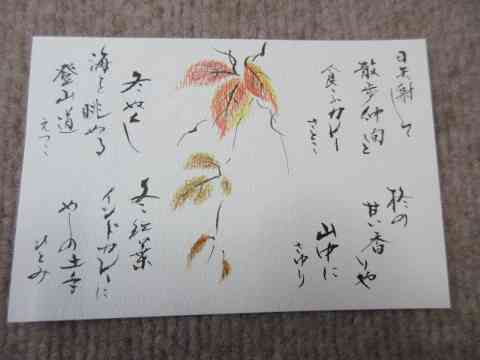 日矢射して
散歩仲間と
食ふカレー
さとこ
柊の
甘い香りや
山中に
さゆり
冬ぬくし
海を眺める
登山道
えつこ
冬紅葉
インドカレーに
やしの
ひとみ